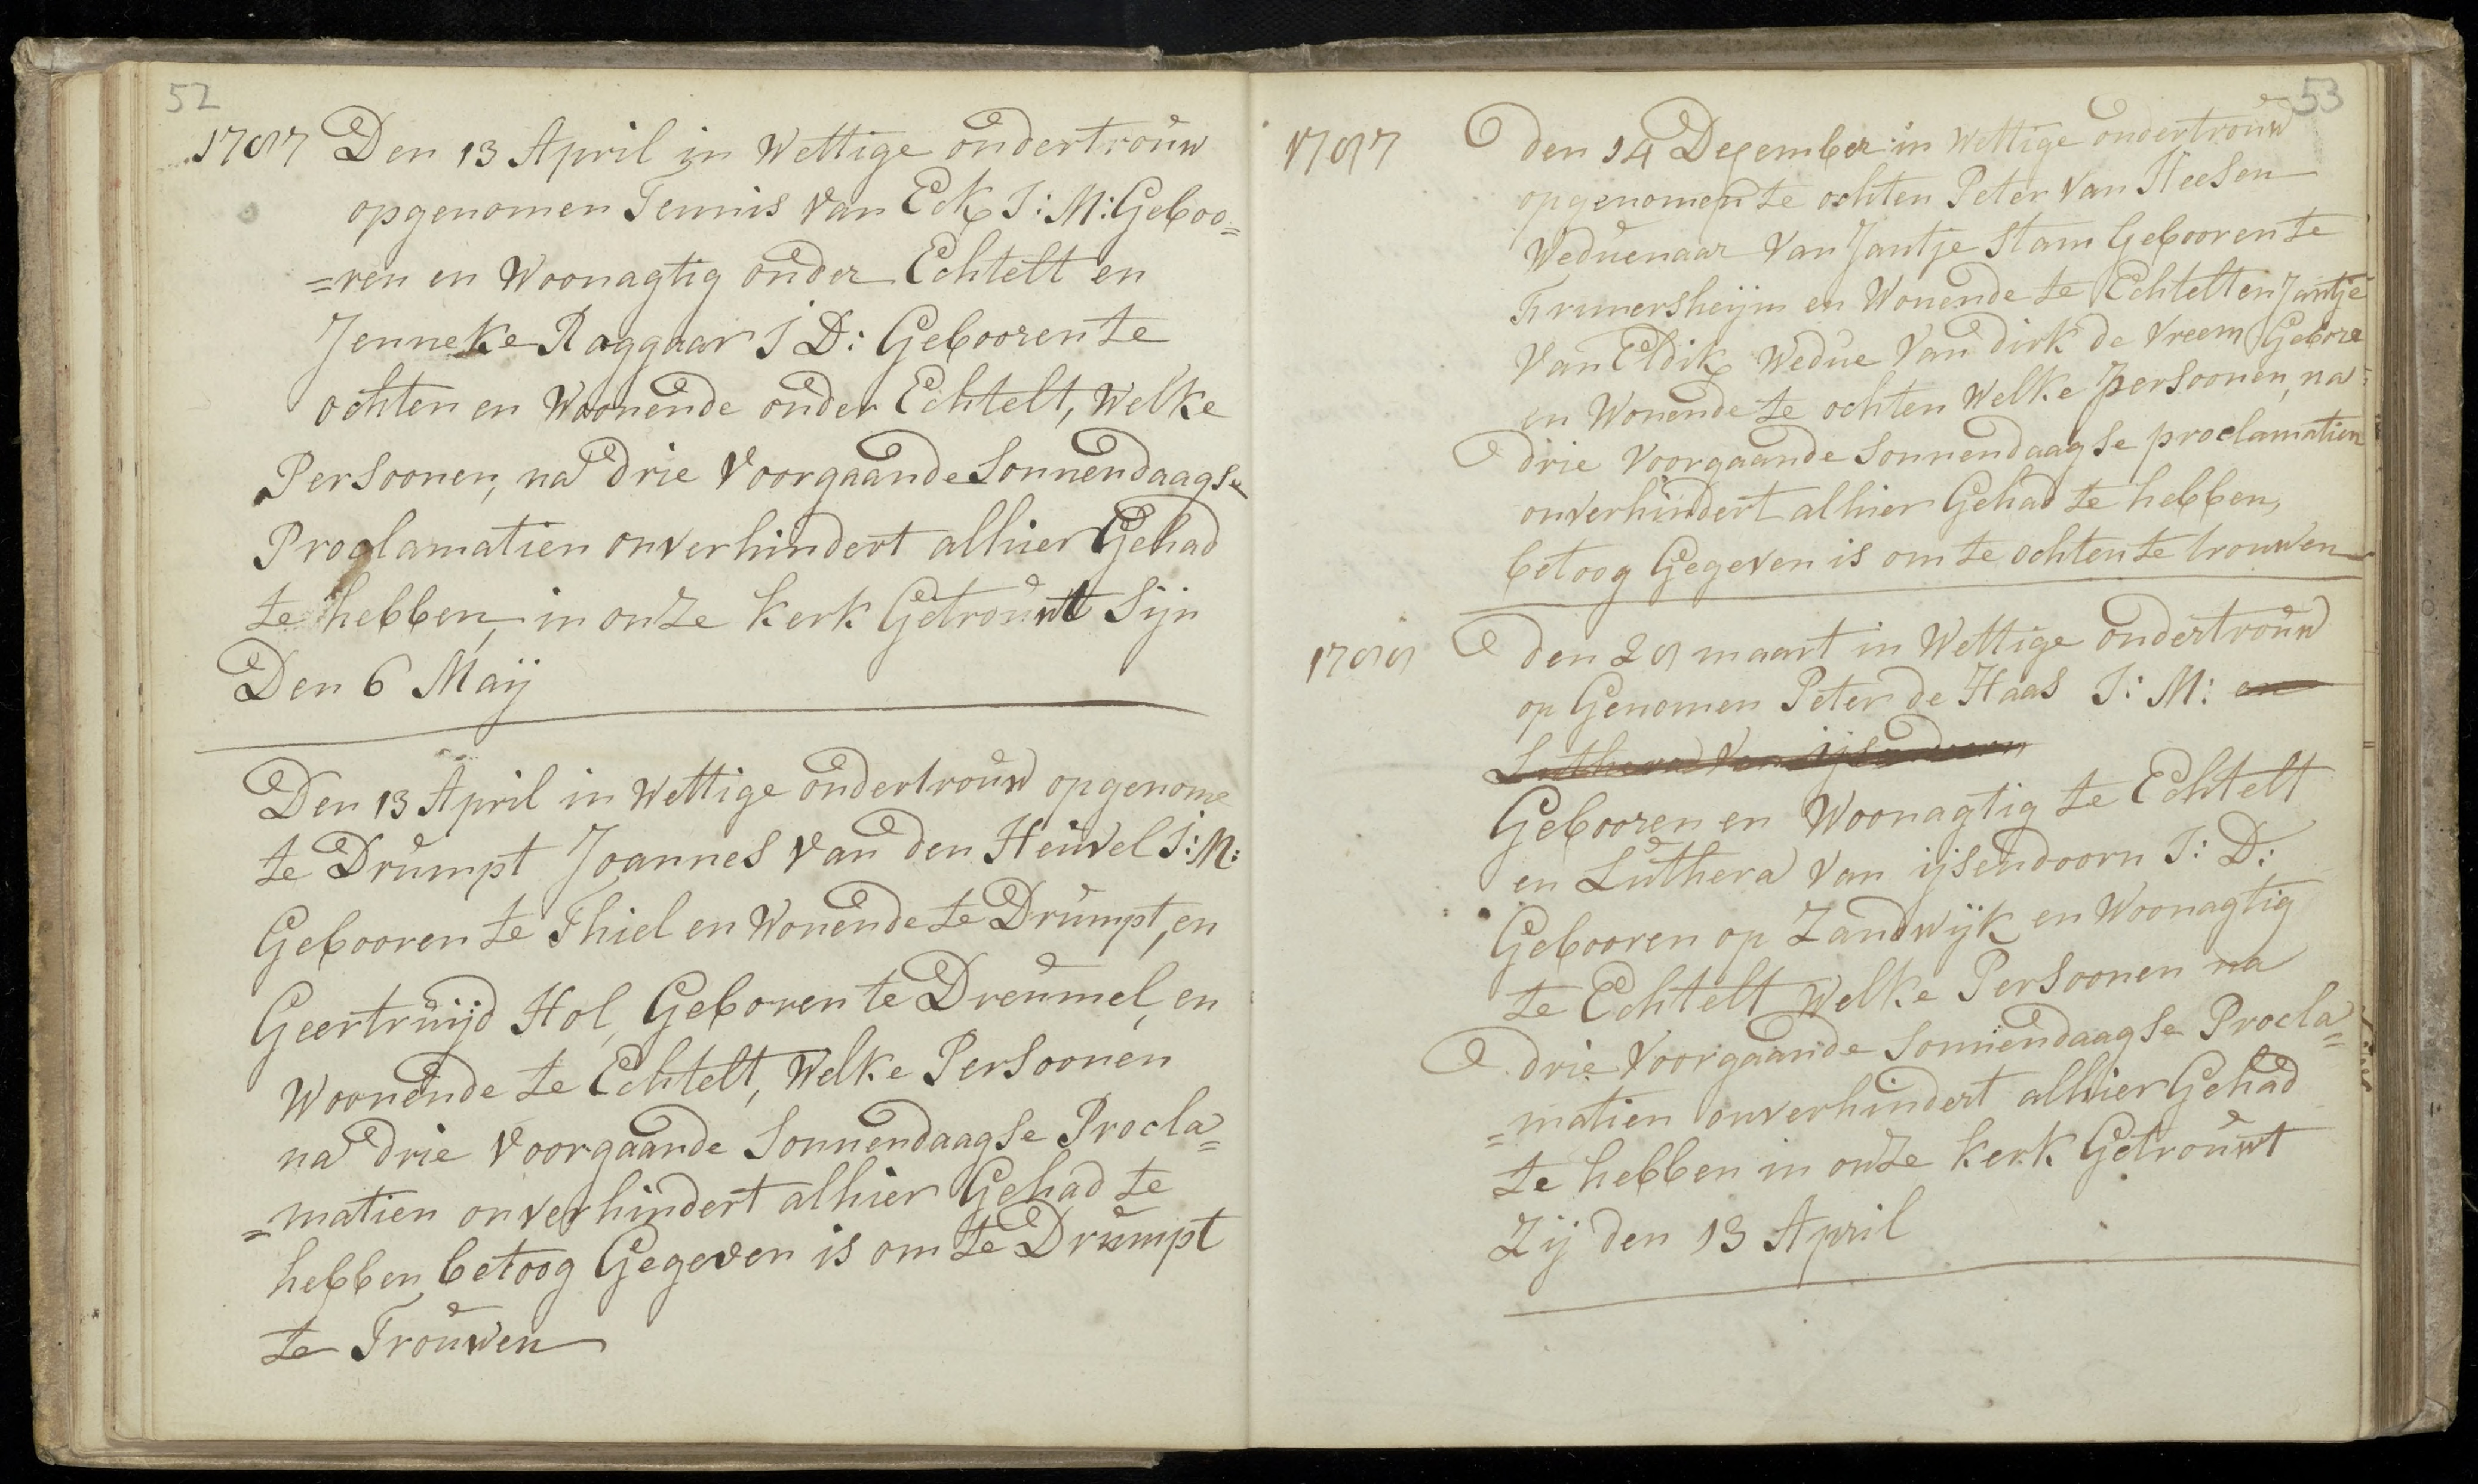 52
1787 Den 13 April in Wettige ondertrouw
opgenomen Teunis van Eck J: M: Geboo=
=ren en Woonagtig onder Echtelt en
Jenneke Raggaar J D: Gebooren te
ochten en Woonende onder Echtelt, Welke
Persoonen, na drie Voorgaande Sonnendaagse
Proclamatien onverhindert alhier Gehad
te hebben, in onze kerk Getrouwt Sijn
Den 6 Maij
Den 13 April in Wettige ondertrouw opgenome
te Drumpt Joannes van den Heuvel J: M:
Gebooren te Thiel en Wonende te Drumpt, en
Geertruijd Hol, Geboren te Dreumel, en
Woonende te Echtelt, Welke Persoonen
na drie Voorgaande Sonnendaagse Procla=
=matien onverhindert alhier Gehad te
hebben, betoog Gegeven is om te Drumpt
te Trouwen
53
1787 den 14 December in Wettige ondertrouw
opgenomen te ochten Peter van Heesen
Weduenaar Van Jantje Stam Gebooren te
en Wonende te Echtelt en Jantje
Van Eldik Wedue Van dirk de Vreem Gebore
en Wonende te ochten Welke persoonen, na
drie Voorgaande Sonnendaagse proclamatien
onverhindert alhier Gehad te hebben,
betoog Gegeven is om te ochten te trouwen
1788 den 28 maart in Wettige ondertrouw
op Genomen Peter de Haas J: M: en
Luthera Van ijsendoorn
Gebooren en Woonagtig te Echtelt
en Luthera Van ijsendoorn J: D:
Gebooren op Zandwijk en Woonagtig
te Echtelt Welke Persoonen na
drie Voorgaande Sonnendaagse Procla=
=matien onverhindert alhier Gehad
te hebben in onze kerk Getrouwt
Zij den 13 April